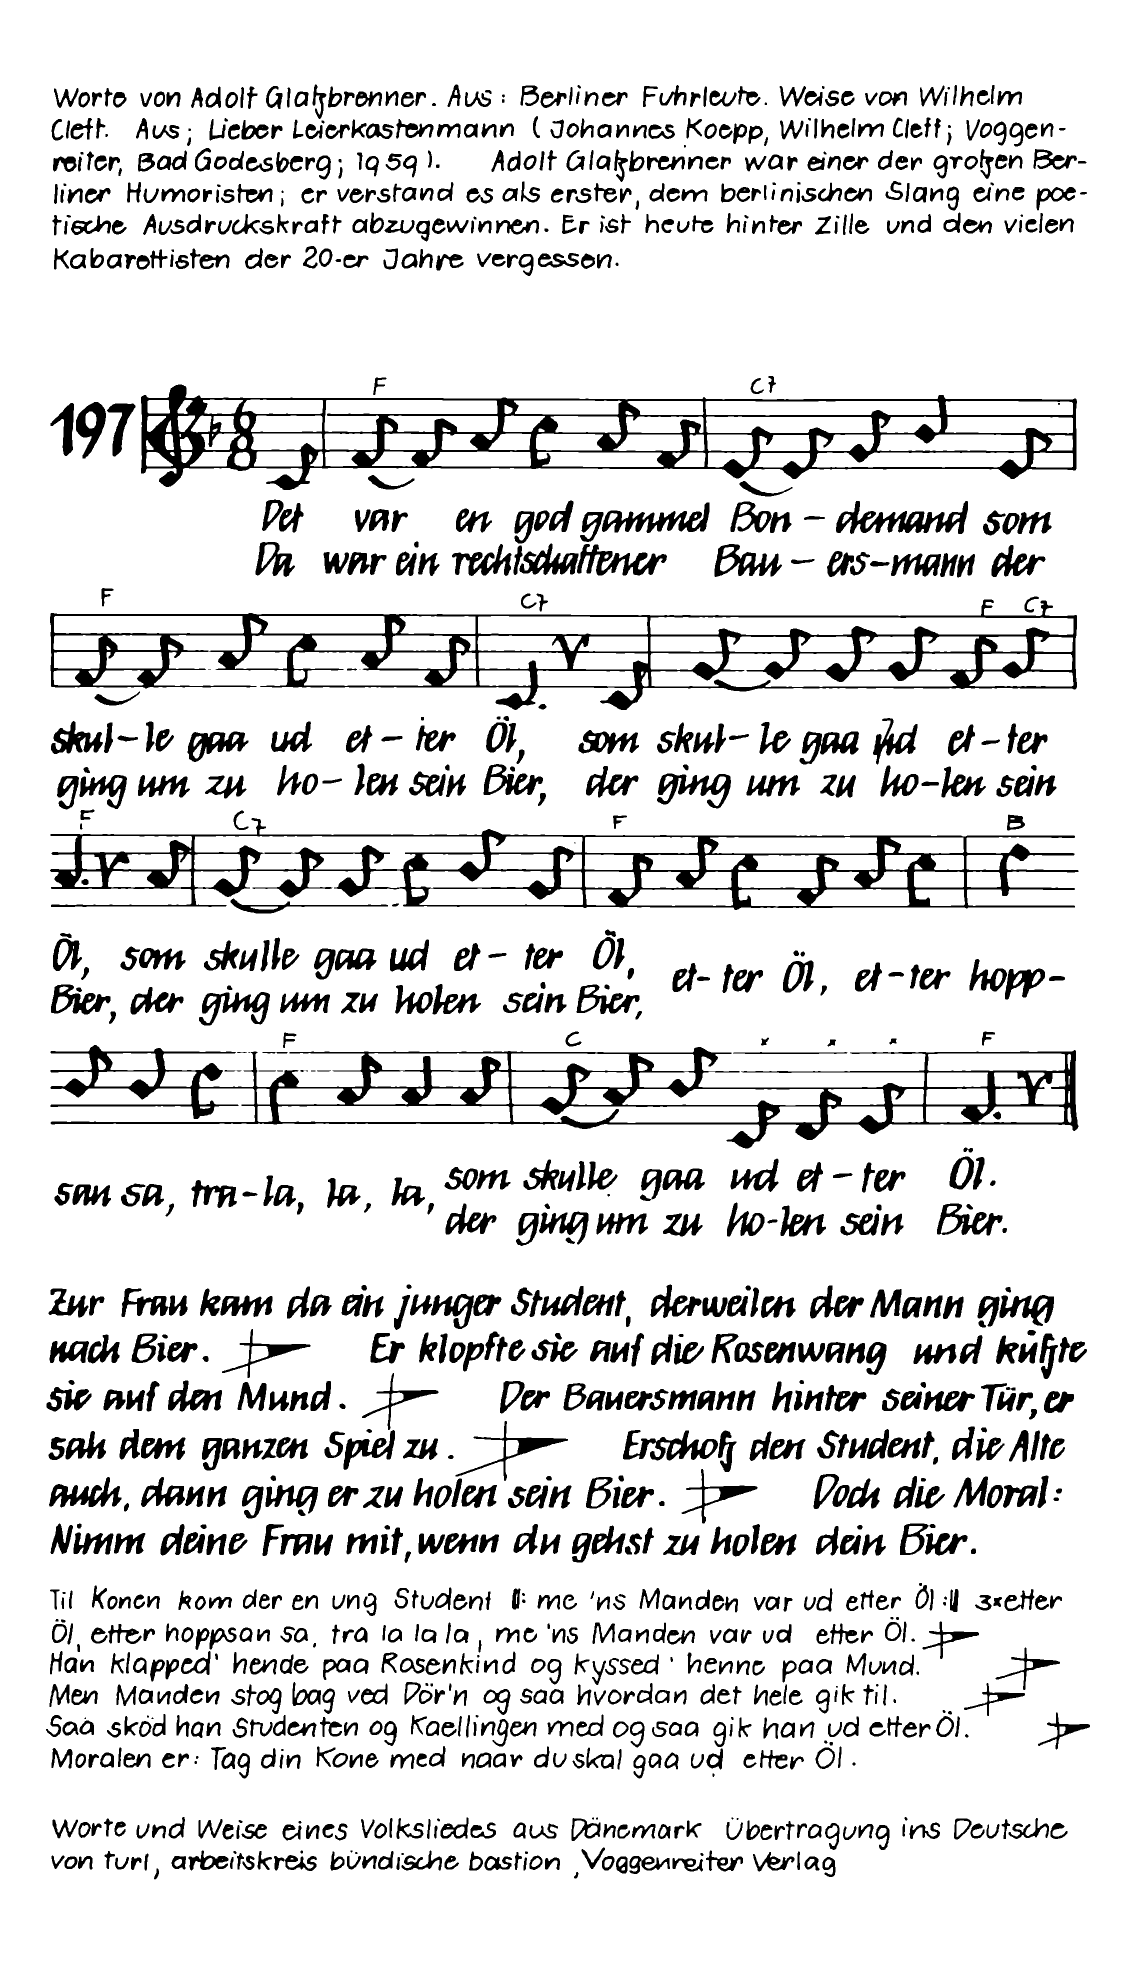 Worte von Adolf Glaßbrenner. Aus: Berliner Fuhrleute. Weise von Wilhelm
Cleff. Aus; Lieber Leierkastenmann (Johannes Koepp, Wilhelm Cleff; Voggen-
reiter, Bad Godesberg; 1959). Adolf Glaßbrenner war einer der großen Ber-
liner Humoristen; er verstand es als erster, dem berlinischen Slang eine poe-
tische Ausdruckskraft abzugewinnen. Er ist heute hinter Zille und den vielen
Kabarettisten der 20-er Jahre vergessen.
F C7
197 6/8
Det var en god gammel Bon-demand som
Da war ein rechtschaffener Bau-ers-mann der
F C7 F C7
skul-le gaa ud et-ter Öl, som skul-le gaa ud et-ter
ging um zu ho-len sein Bier, der ging um zu ho-len sein
F C7 F B
Öl, som skulle gaa ud et-ter Öl, et-ter Öl, et-ter hopp-
Bier, der ging um zu holen sein Bier,
F C x x x F
san sa, tra-la, la, la, som skulle gaa ud et-ter Öl.
der ging um zu ho-len sein Bier.
Zur Frau kam da ein junger Student, derweilen der Mann ging
nach Bier. Er klopfte sie auf die Rosenwang und küßte
sie auf den Mund. Der Bauersmann hinter seiner Tür, er
sah dem ganzen Spiel zu. Erschoß den Student, die Alte
auch, dann ging er zu holen sein Bier. Doch die Moral:
Nimm deine Frau mit, wenn du gehst zu holen dein Bier.
Til Konen kom der en ung Student 𝄆 me 'ns Manden var ud etter Öl 𝄇 3x etter
Öl, etter hoppsan sa, tra la la la, me 'ns Manden var ud etter Öl.
Han klapped' hende paa Rosenkind og kyssed' henne paa Mund.
Men Manden stog bag ved Dör'n og saa hvordan det hele gik til.
Saa sköd han Studenten og Kaellingen med og saa gik han ud etter Öl.
Moralen er: Tag din Kone med naar du skal gaa ud etter Öl.
Worte und Weise eines Volksliedes aus Dänemark Übertragung ins Deutsche
von turl, arbeitskreis bündische bastion, Voggenreiter Verlag